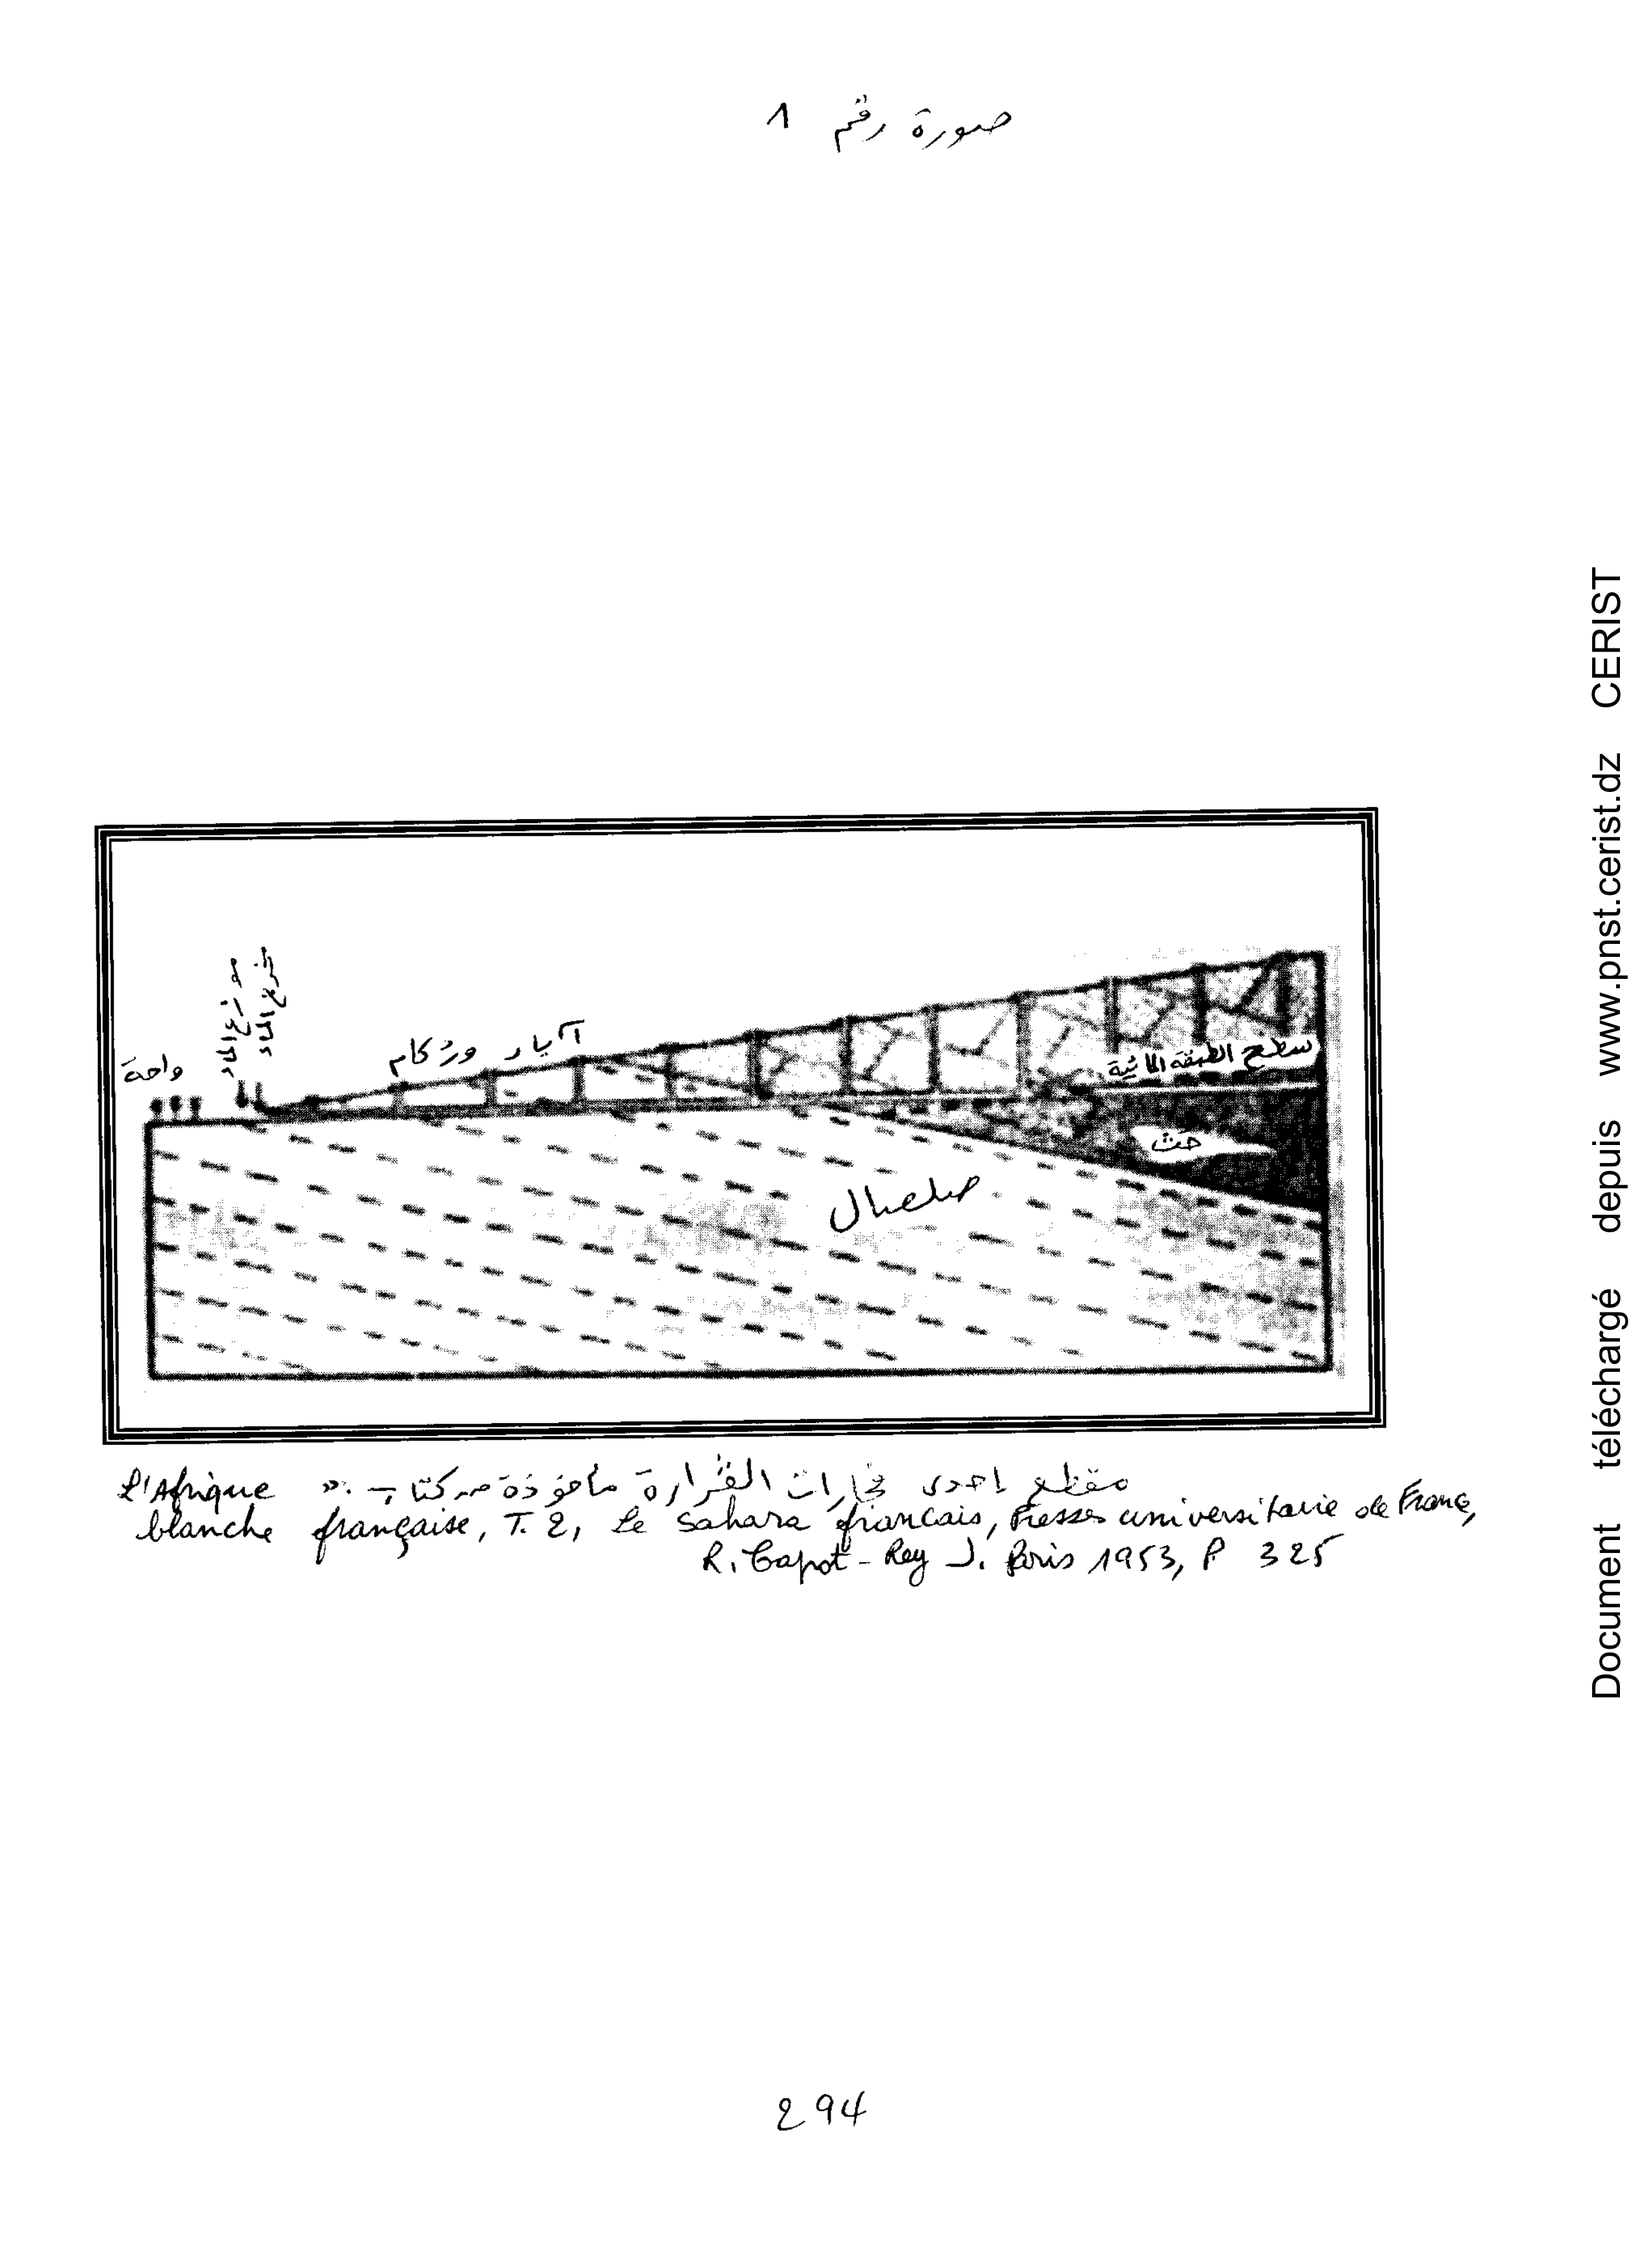 صورة رقم 1
موزع الماء
مخرج الماء
واحة
آبار وركام
سطح الطبقة المائية
حث
صلصال
مقطع إحدى فجارات القرارة مأخوذة من كتاب : "
L'Afrique
blanche française, T. 2, Le Sahara francais, Presses universitaire de France,
R. Capot-Rey J. Paris 1953, P 325
294
Document téléchargé depuis www.pnst.cerist.dz CERIST